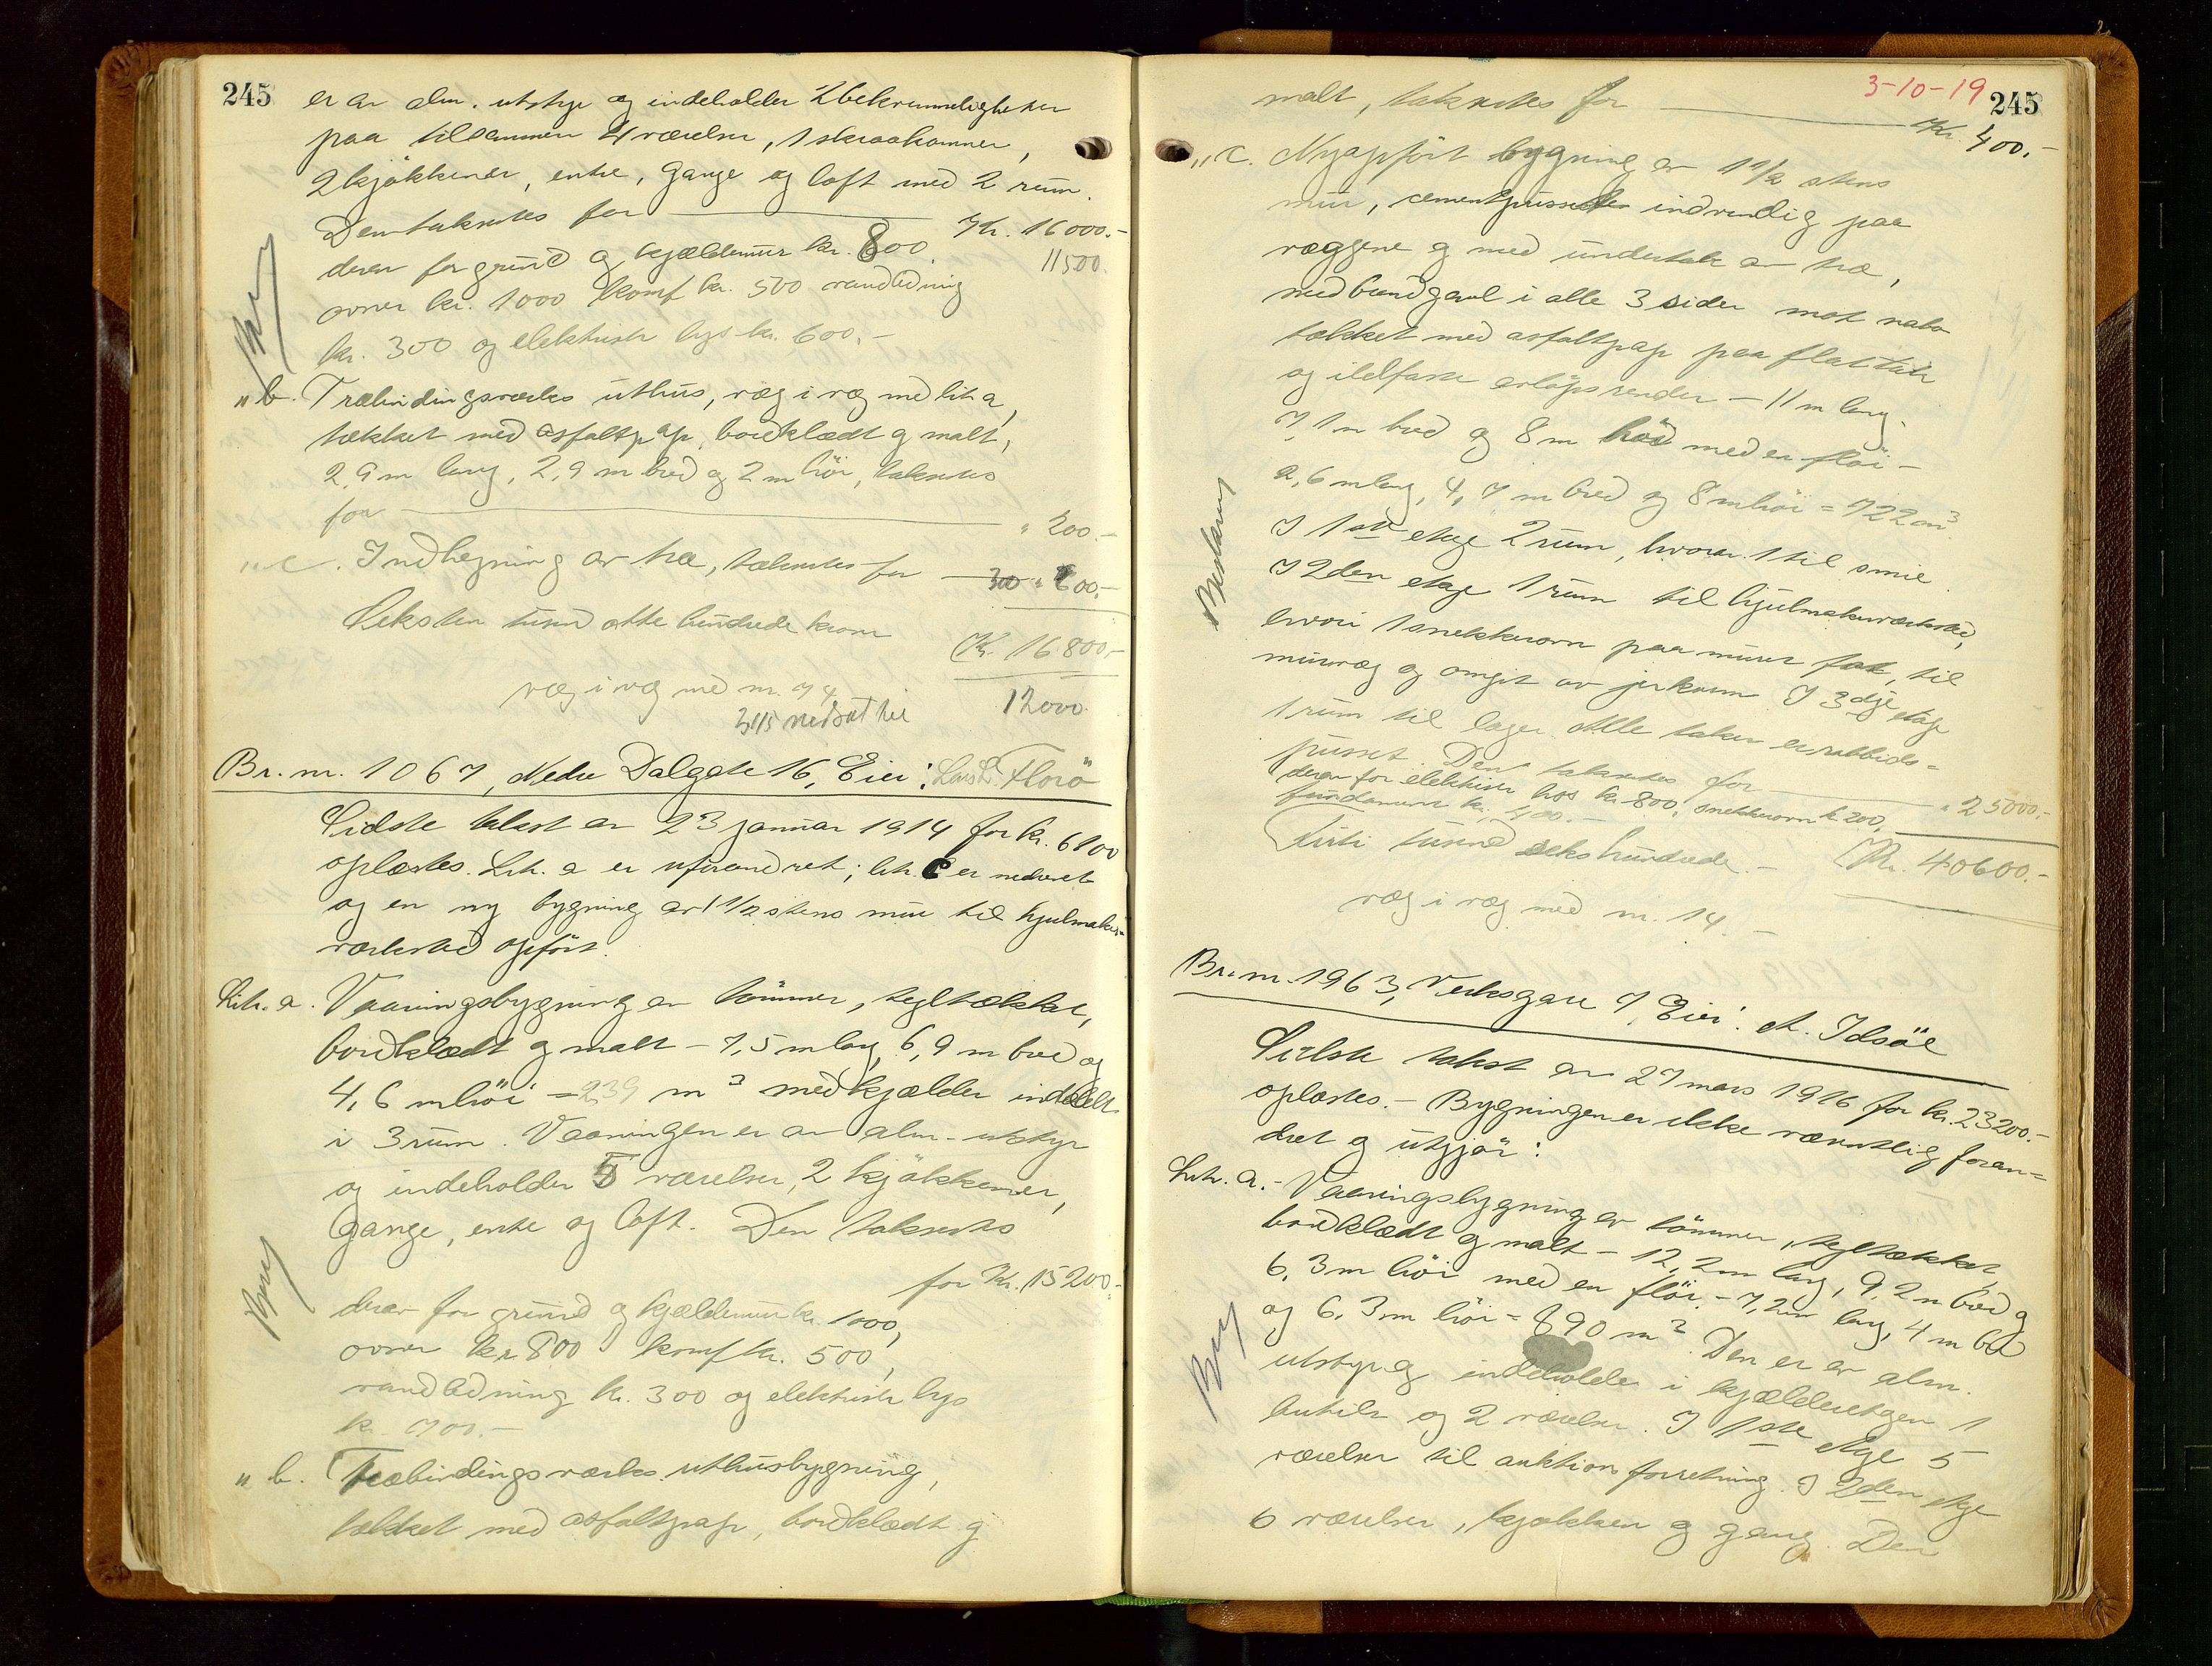 245
er av alm. utstyr og indeholder 2 bekvemmeligheter
paa tilsammen 4 værelser, 1 skraakammer,
2 kjøkkener, entre, gange og loft med 2 rum.
Den takseres for Kr. 16000.-
derav for grund og kjældermur kr. 800, 11500.
ovner kr. 1000 komf kr. 500 vandledning
kr. 300 og elektrisk lys kr. 600.-
Bev
" b. Træbindingsverks uthus, væg i væg med lit a,
tækket med asfaltpap, bordklædt og malt,
2,9 m lang, 2,9 m bred og 2 m høi, takseres
for " 200.-
" c. Indhegning av træ, takseres for 300 " 600.-
Seksten tusen otte hundrede kroner Kr. 16800.-
væg i væg med nr. 74
3/15 nedsat til 12000.
Br. nr. 1067, Nedre Dalgate 16, Eier: Lars L. Florö
Sidste takst av 23 januar 1914 for kr. 6100
oplæstes. Lit. a er uforandret; lit. c er nedrevet
og en ny bygning av 1 1/2 stens mur til hjulmaker-
verksted opført.
Lit. a. Vaaningsbygning av tømmer, tegltækket,
bordklædt og malt - 7,5 m lang, 6,9 m bred og
4,6 m høi = 239 m³ med kjælder inddelt
i 3 rum. Vaaningen er av alm. utstyr
og indeholder 5 værelser, 2 kjøkkener,
gange, entre og loft. Den takseres
for Kr. 15200.-
derav for grund og kjældermur kr. 1000,
ovner kr 800 komf kr. 500,
vandledning kr. 300 og elektrisk lys
kr. 700.-
Bev
" b. Træbindingsverks uthusbygning,
tækket med asfaltpap, bordklædt og
3-10-19 245
malt, takseres for Kr. 400.-
" c. Nyopført bygning av 1 1/2 stens
mur, cementpusset indvendig paa
væggene og med undertak av træ,
med brandgavl i alle 3 sider mot nabo
tækket med asfaltpap paa flatt tak
og ildfaste avløpsrender - 11 m lang,
7,1 m bred og 8 m høi med en fløi -
2,6 m lang, 4,7 m bred og 8 m høi = 722 m³
I 1ste etage 2 rum, hvorav 1 til smie
I 2den etage 1 rum til hjulmakerverksted,
hvori 1 snekkerovn paa muret fot, til
murvæg og omgit av jerkarm I 3dje etage
1 rum til lager. Alle taker er rabbids-
pusset. Den takseres for " 25000.-
derav for elektrisk lys kr. 800, snekkerovn kr 200,
fundament kr. 400.-
Firti tusend seks hundrede.- Kr. 40600.-
væg i væg med nr. 14.-
Br. nr. 1963, Verksgaten 7, Eier: A. Idsöe
Sidste takst av 27 mars 1916 for kr. 23200.-
oplæstes. - Bygningen er ikke væsentlig foran-
dret og utgjør:
Lit. a. - Vaaningsbygning av tømmer, tegltækket,
bordklædt og malt - 12,2 m lang, 9,2 m bred og
6,3 m høi med en fløi - 7,2 m lang, 4 m bred
og 6,3 m høi = 890 m³. Den er av alm.
utstyr og indeholder i kjælderetagen 1
butik og 2 værelser. I 1ste etage 5
værelser til auktionsforretning. I 2den etage
6 værelser, kjøkken og gang. Den
Bev